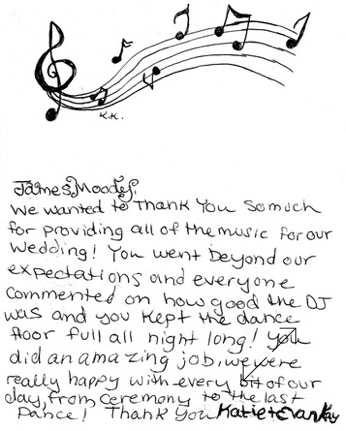 K.K.
James Moody,
We wanted to Thank You So much
for providing all of the music for our
Wedding! You went beyond our
expectations and everyone
commented on how good the DJ
was and you kept the dance
floor full all night long! you
did an amazing job, we were
really happy with every bit of our
day, from ceremony to the last
Dance! Thank You Katie + Evan